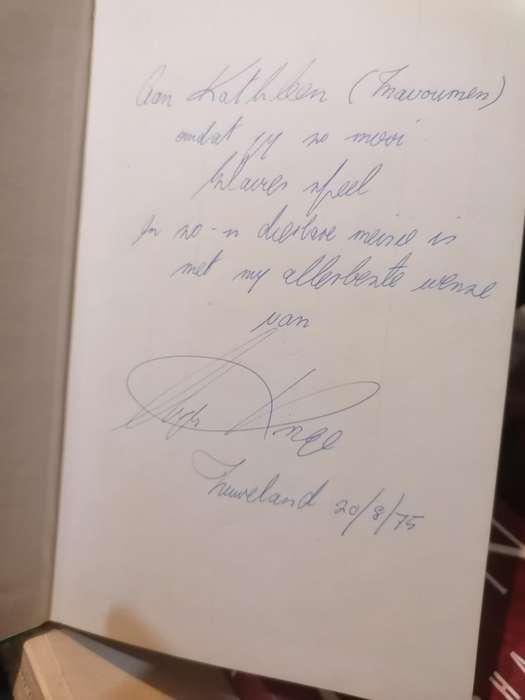 Aan Kathleen (Mavoumen)
omdat jy so mooi
klavier speel
en so-n dierbare meisie is
met my allerbeste wense
van
Nuweland 20/8/75